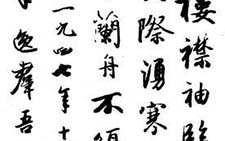 樓襟袖臨
際湧寒
蘭舟不
一九四七年十
逸羣吾